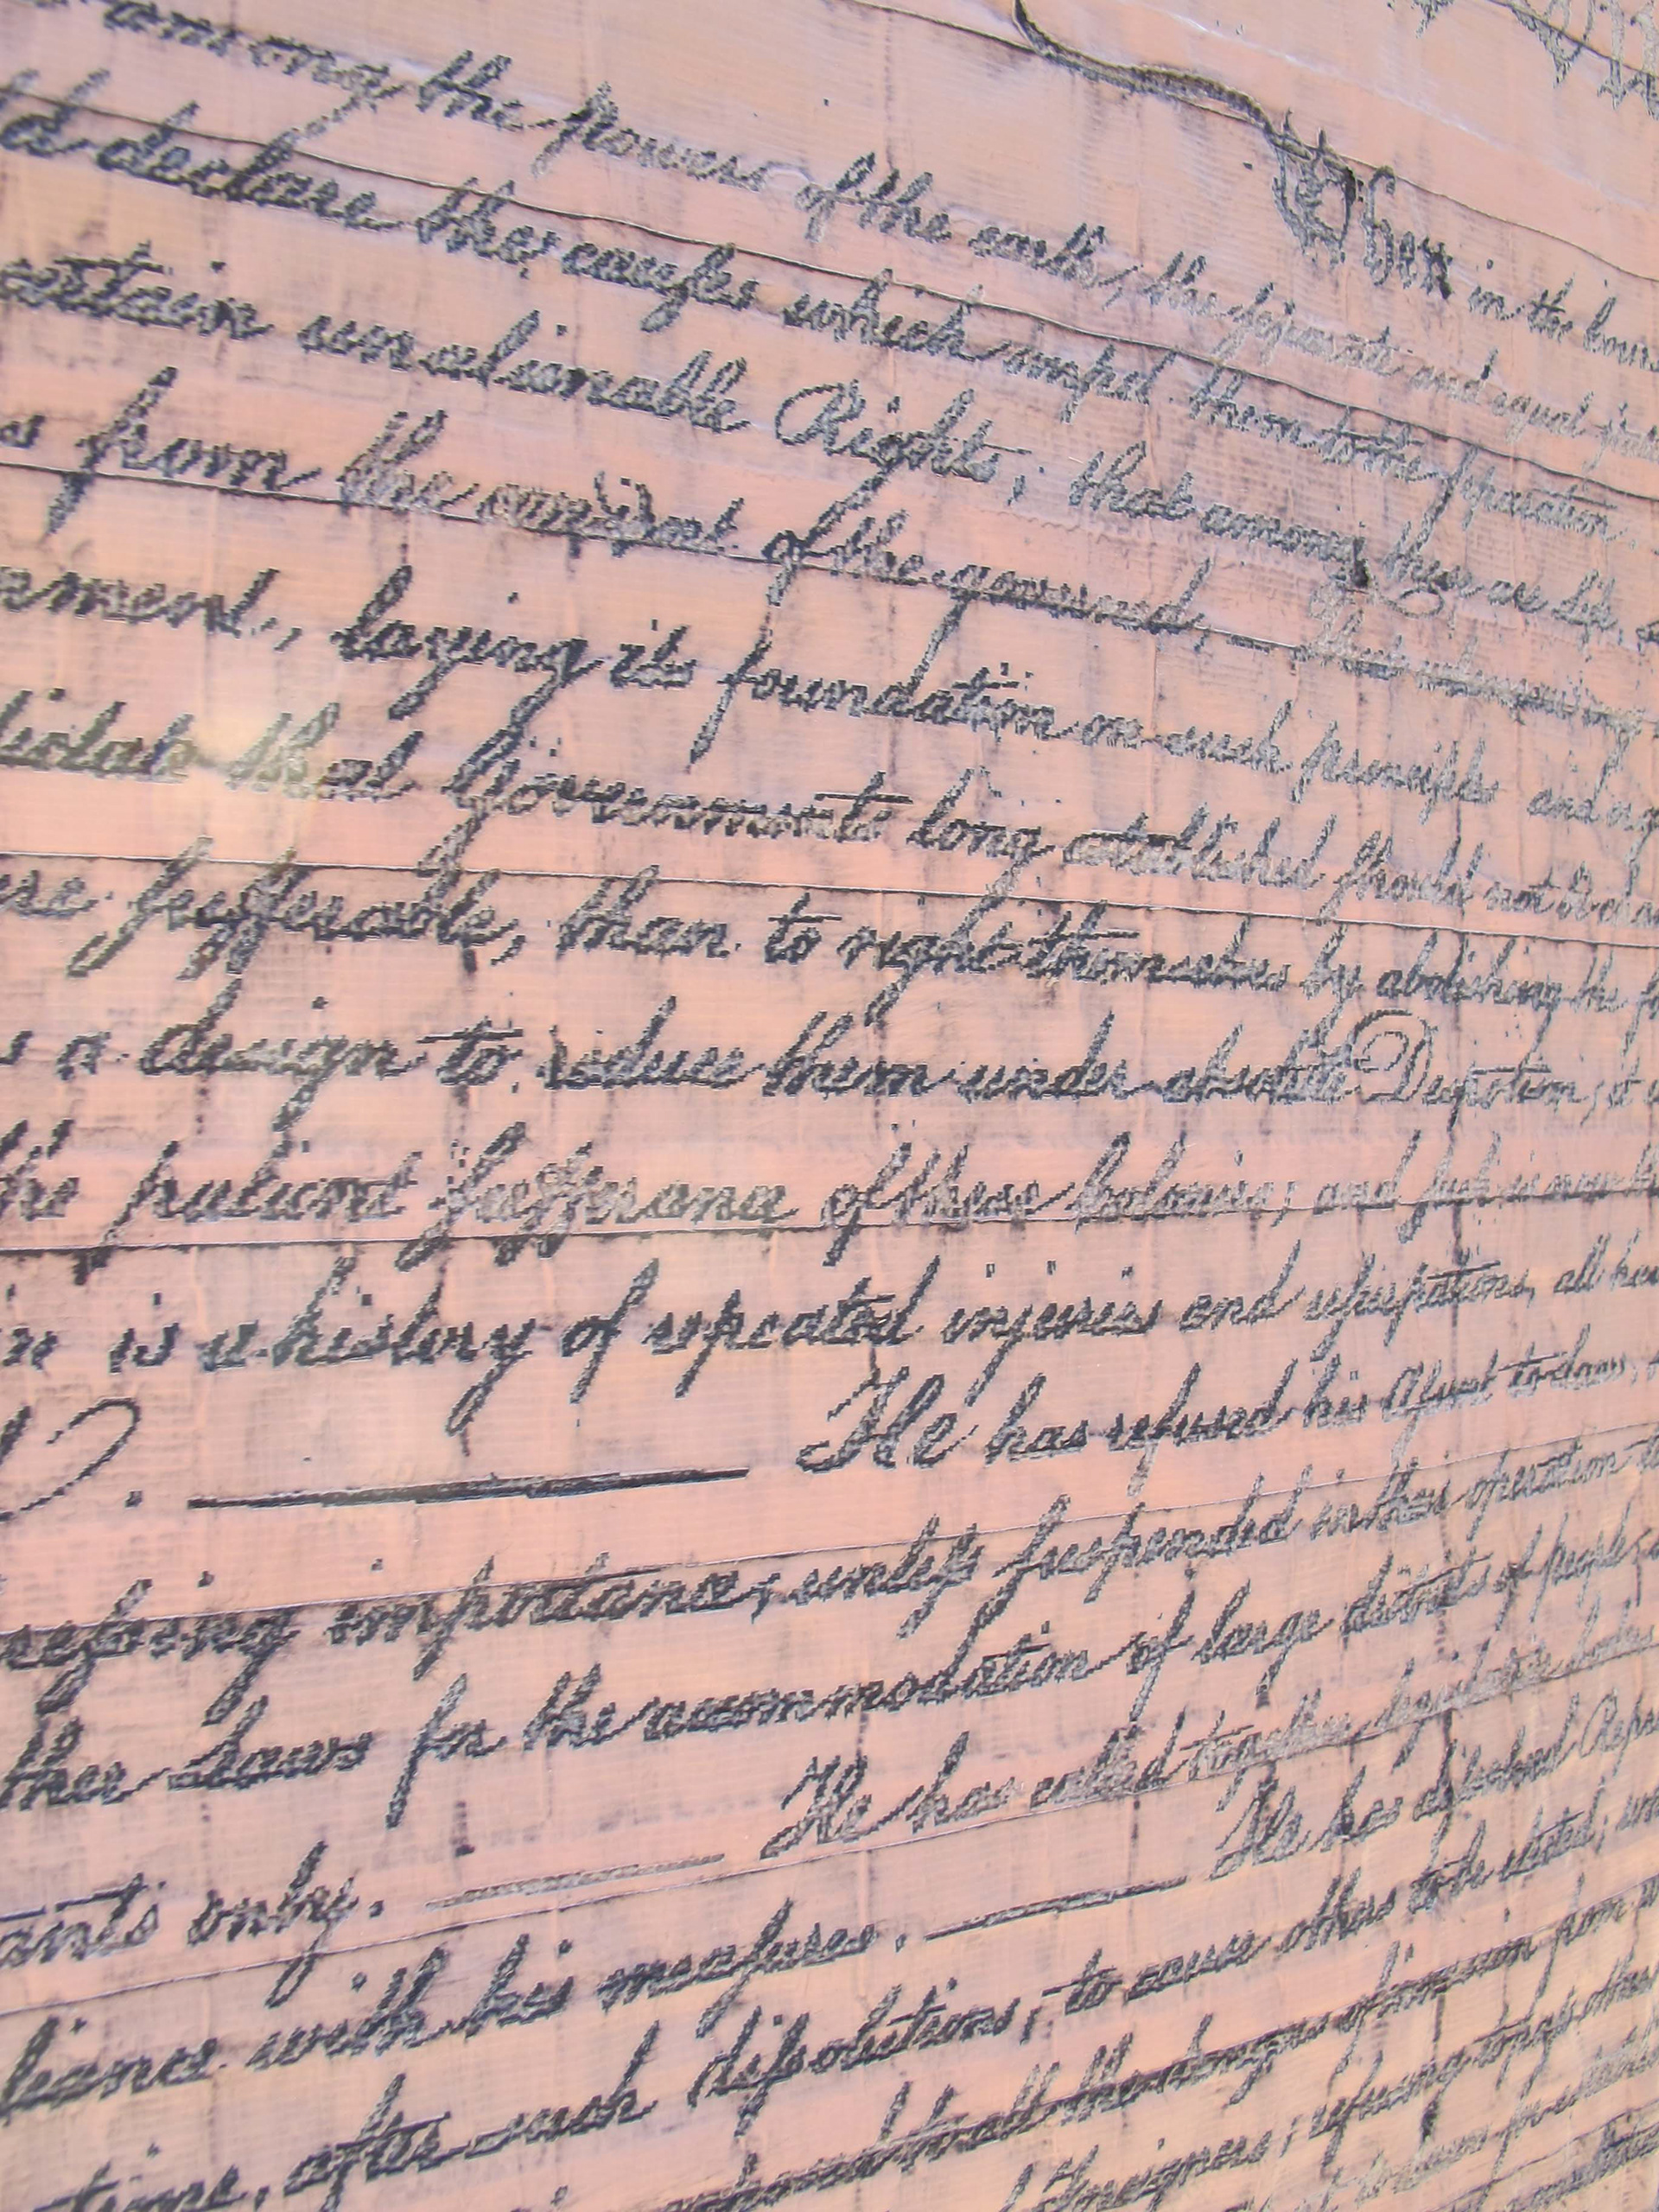 When in the Cours
among the powers of the earth, the separate and equal
d declare the causes which impel them to the separation.
ertain unalienable Rights; that among these are Life,
s from the consent of the governed, — That whenever any
nment, laying its foundation on such principles and org
dictate that Governments long established should not be cha
re sufferable, than to right themselves by abolishing the fo
s a design to reduce them under absolute Despotism, it
the patient sufferance of these Colonies; and such is now th
n is a history of repeated injuries and usurpations, all hav
. — He has refused his Assent to Laws,
pressing importance, unless suspended in their operation
ther Laws for the accommodation of large districts of people,
ants only. — He has called together legislative bodies
liance with his measures. — He has dissolved Repre
time, after such dissolutions, to cause others to be elected; wh
to all the dangers of invasion from w
Foreigners; refusing to pass others